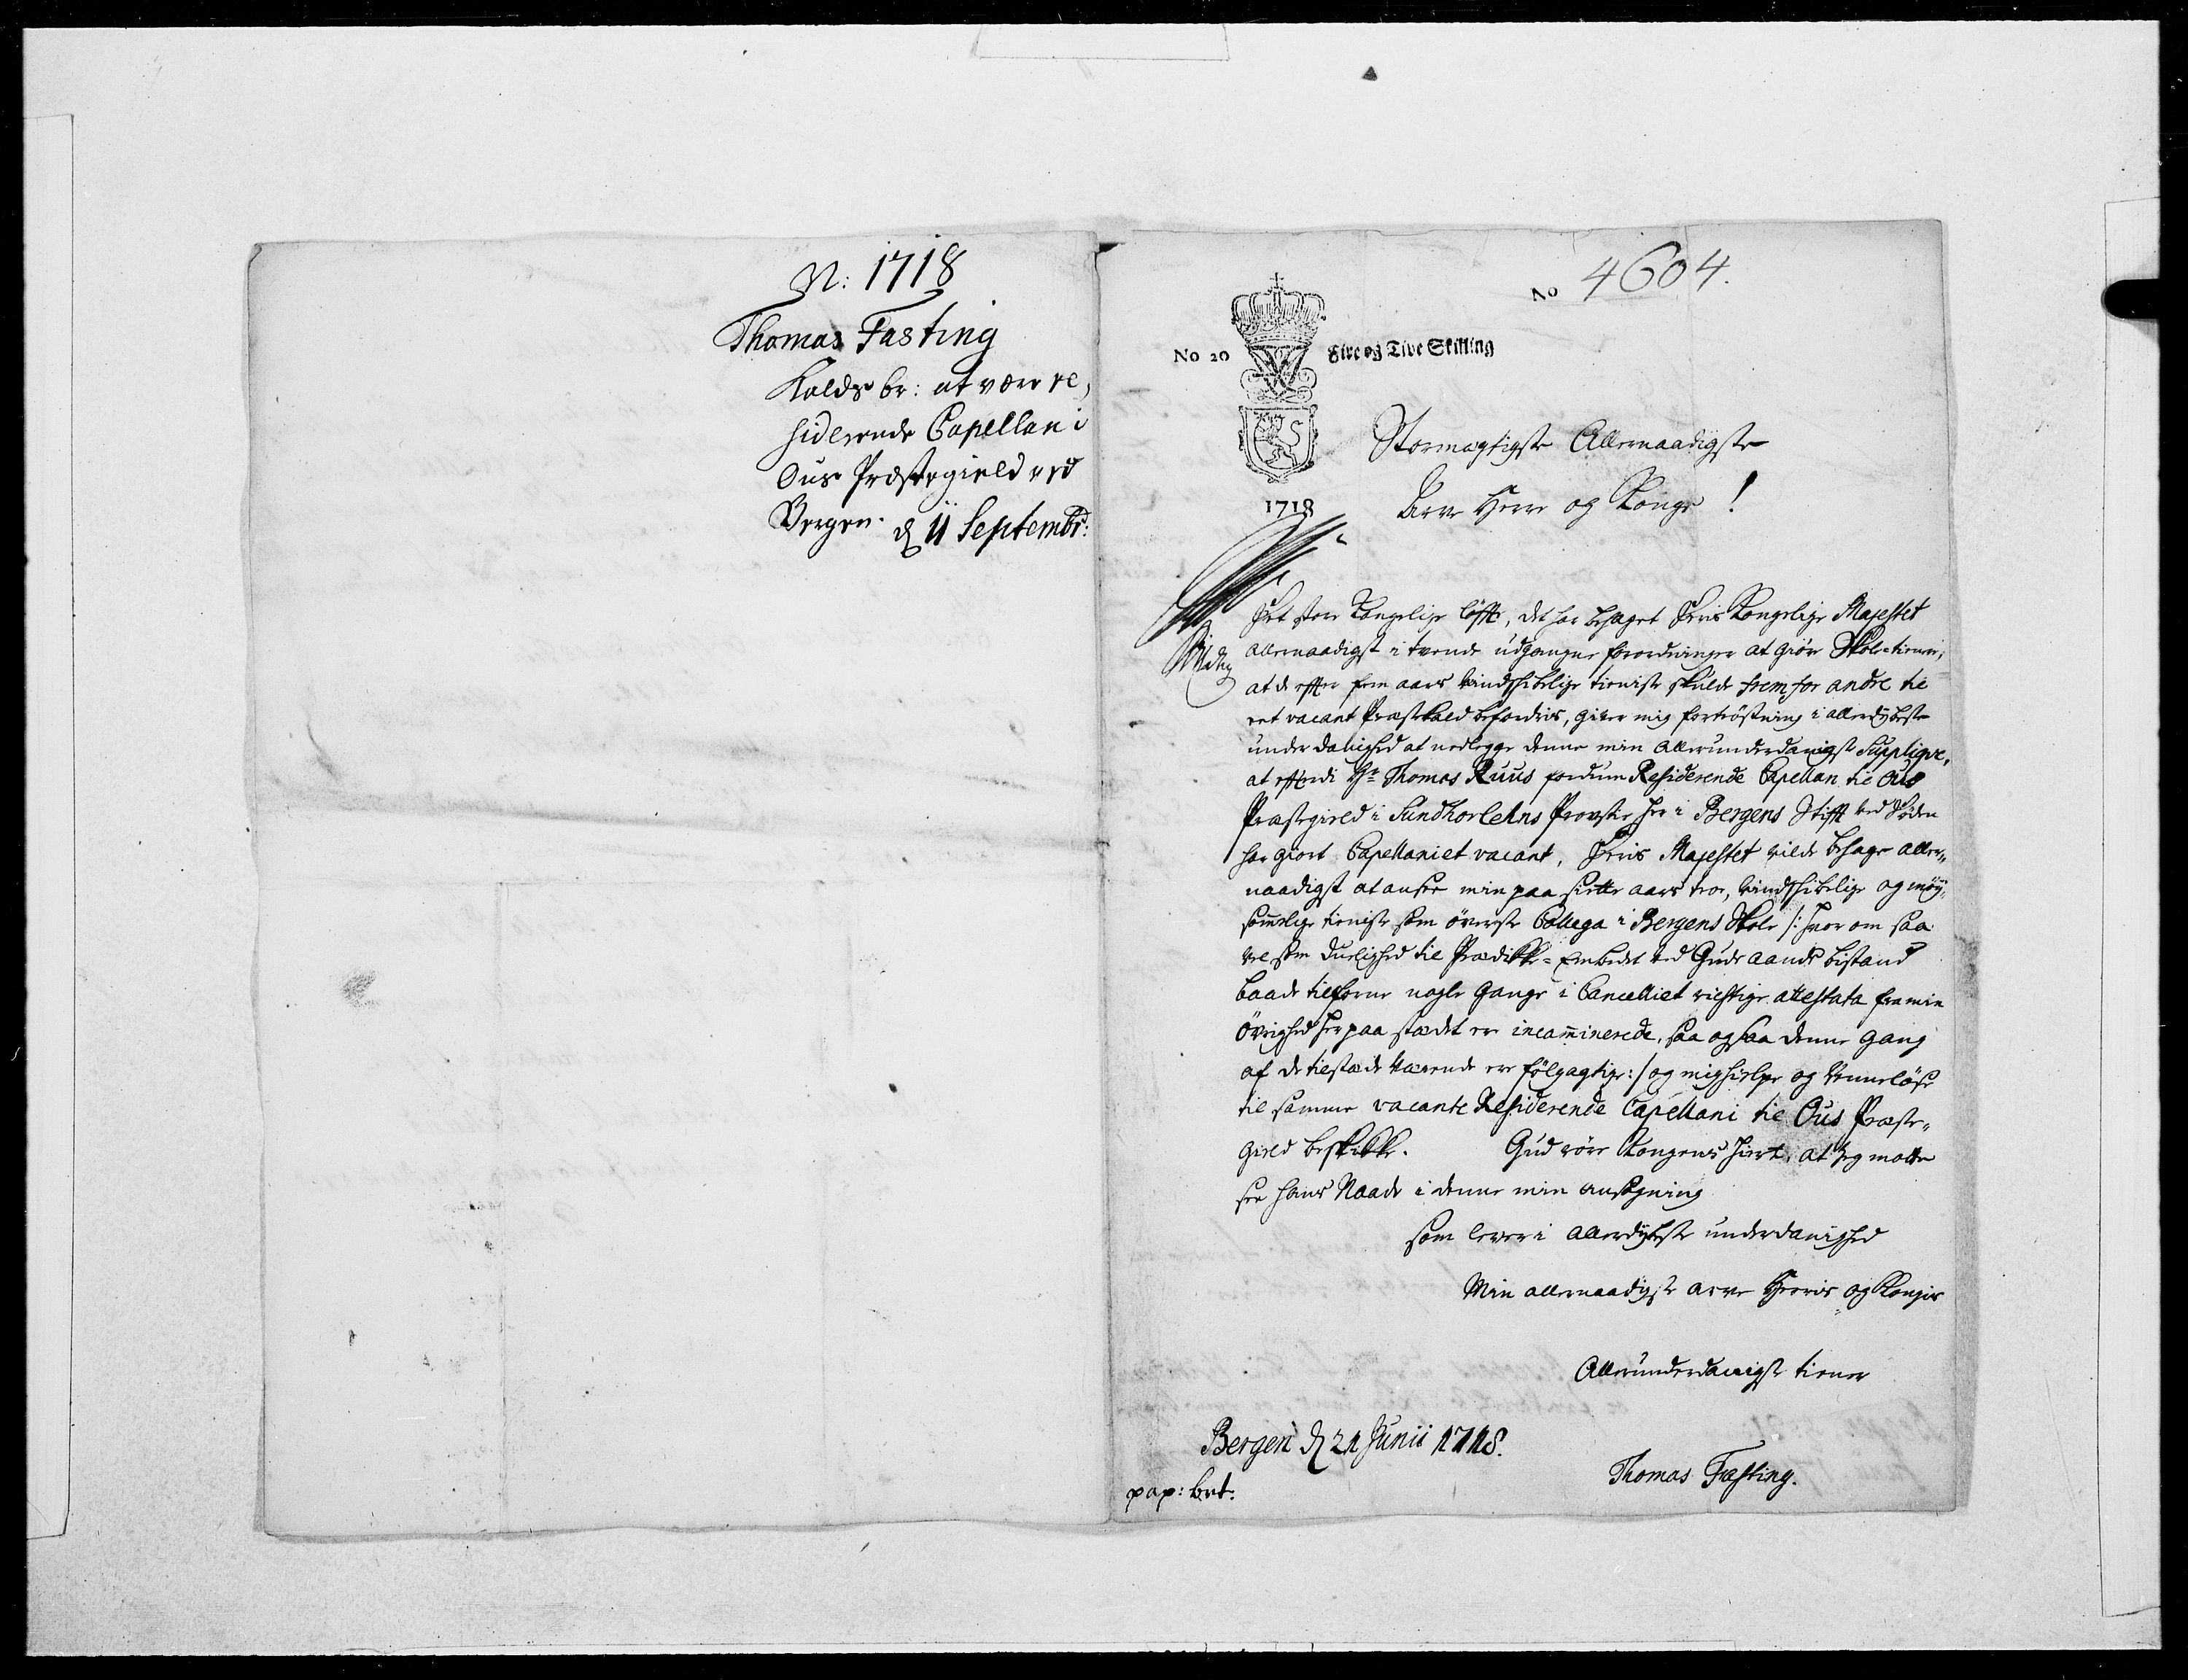 N: 1718
Thomas Fasting
Kalds br: at være re,
siderende Capellan i
Ous Præstegield ved
Bergen. d 11 Septembr:
No 4604.
No 20 Fire og Tive Skilling
1718
Stormægtigste Allernaadigste
Arve Herre og Konge!
Det store Kongelige løffte, det har behaget Eders Kongelige Majestet
allernaadigst i tvende udgangne forordninger at giøre Skole-tienere,
at de effter fem aars vindskibelige tieniste skulde frem for andre til
eet vacant Præstekald befordris, giver mig fortrøstning i allerdybeste
underdanighed at nedlegge denne min allerunderdanigst Supplique,
at efftterdi Hr Thomas Ruus fordum Residerende Capellan til Ous
Præstegield i Sundhorlehns Provstie her i Bergens Stifft ved Døden
har giort Capellaniet vacant, Eders Majestet vilde behage aller„
naadigst at ansee min paa siette aars troe, vindskibelige og møy„
sommelige tieniste som øverste Collega i Bergens Skole /: hvor om saa
vel som duelighed til Prædikke-Embedet ved Guds aands bistand
baade tilforne nogle gange i Cancelliet rigtige attestata fra min
øvrighed her paa stædet ere incamminerede, saa og saa denne gang
af de tilstæde værende ere følgagtige :/ og mig hielpe og Venneløse
til samme vacante Residerende Capellani til Ous Præste„
gield beskikke. Gud røre Kongens hierte, at jeg motte
see hans Naade i denne min ansøgning
som lever i allerdybeste underdanighed
Min allernaadigste arve Herris og Kongis
Allerunderdanigste tiener
Bergen d 21 Junii 1718.
Thomas Fasting.
pap: brt: